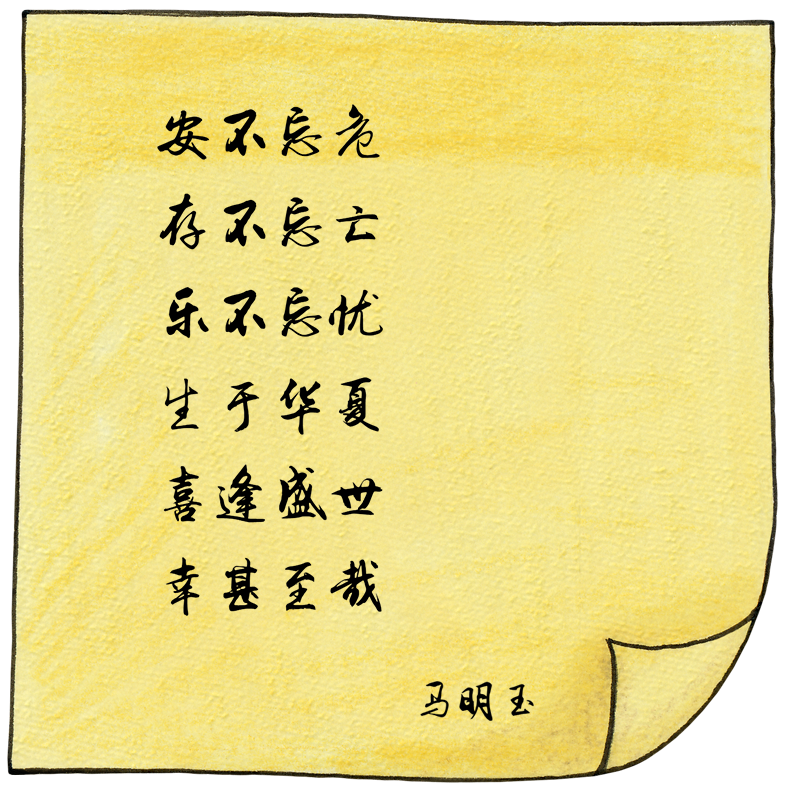 安不忘危
存不忘亡
乐不忘忧
生于华夏
喜逢盛世
幸甚至哉
马明玉